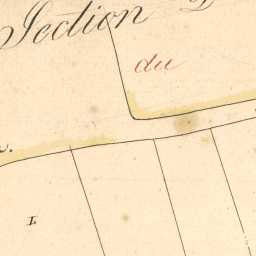 Section
du
1.